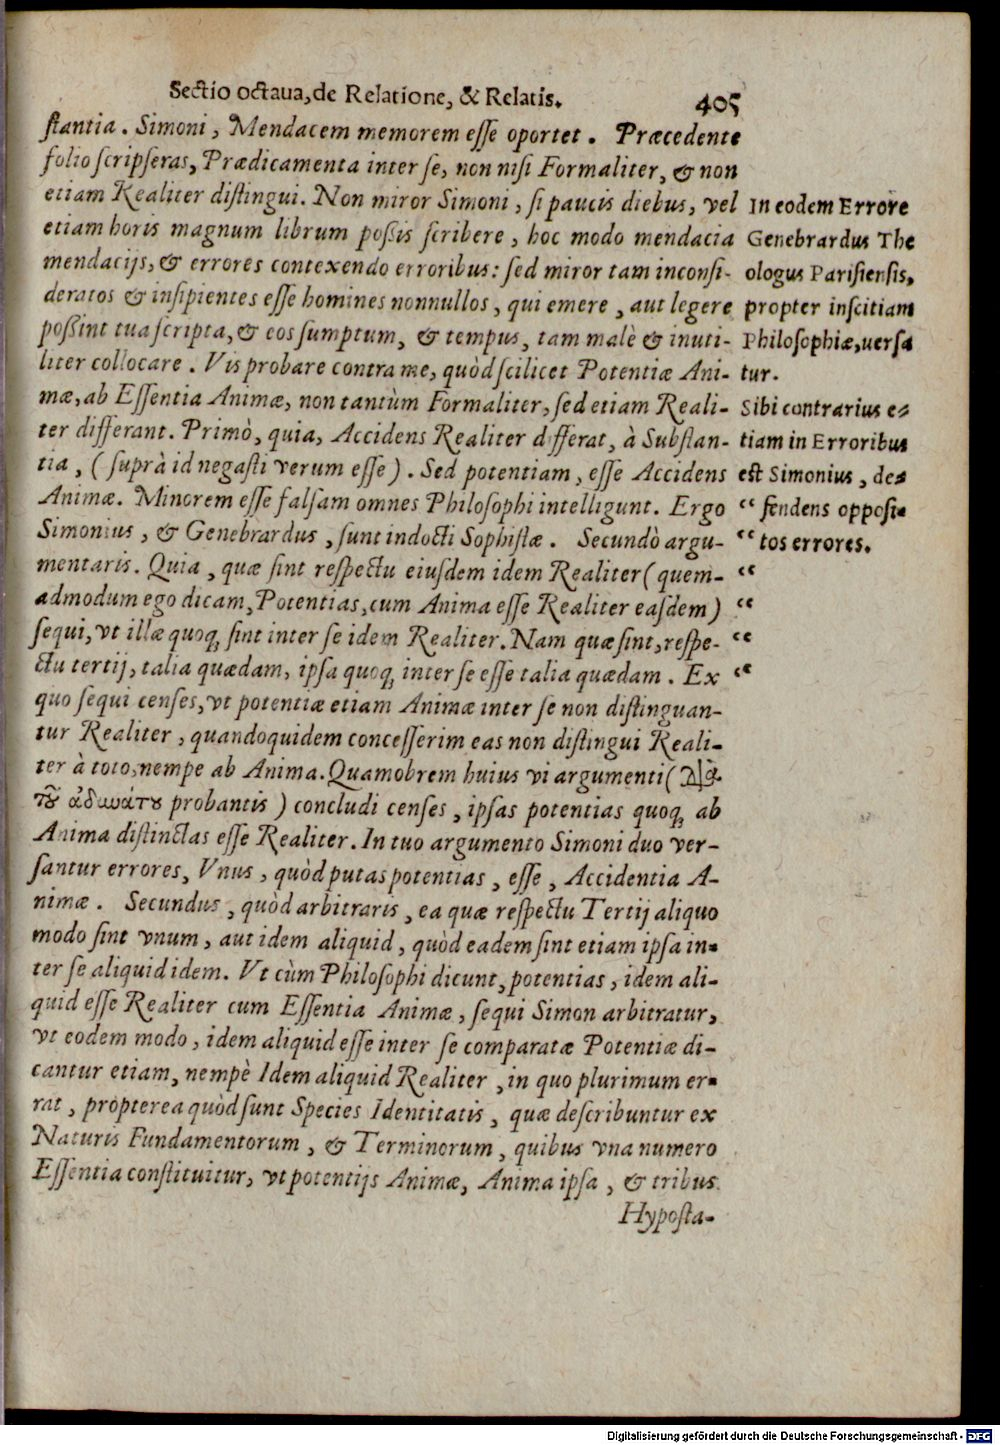 Sectio octaua, de Relatione, & Relatis. 405
ſtantia. Simoni, Mendacem memorem eſſe oportet. Præcedente
folio ſcripſeras, Prædicamenta inter ſe, non niſi Formaliter, & non
etiam Realiter diſtingui. Non miror Simoni, ſi paucis diebus, vel
etiam horis magnum librum poſsis ſcribere, hoc modo mendacia
mendacijs, & errores contexendo erroribus: ſed miror tam inconſi-
deratos & inſipientes eſſe homines nonnullos, qui emere, aut legere
poſsint tua ſcripta, & eos ſumptum, & tempus, tam malè & inuti-
liter collocare. Vis probare contra me, quòd ſcilicet Potentiæ Ani-
mæ, ab Eſſentia Animæ, non tantùm Formaliter, ſed etiam Reali-
ter differant. Primò, quia, Accidens Realiter differat, à Subſtan-
tia, (ſuprà id negaſti verum eſſe). Sed potentiam, eſſe Accidens
Animæ. Minorem eſſe falſam omnes Philoſophi intelligunt. Ergo
Simonius, & Genebrardus, ſunt indocti Sophiſtæ. Secundò argu-
mentaris. Quia, quæ ſint reſpectu eiuſdem idem Realiter (quem-
admodum ego dicam, Potentias, cum Anima eſſe Realiter eaſdem)
ſequi, vt illæ quoq; ſint inter ſe idem Realiter. Nam quæ ſint, reſpe-
ctu tertij, talia quædam, ipſa quoq; inter ſe eſſe talia quædam. Ex
quo ſequi cenſes, vt potentiæ etiam Animæ inter ſe non diſtinguan-
tur Realiter, quandoquidem conceſſerim eas non diſtingui Reali-
ter à toto, nempe ab Anima. Quamobrem huius vi argumenti (Διὰ
τοῦ ἀδυνάτου probantis) concludi cenſes, ipſas potentias quoq; ab
Anima diſtinctas eſſe Realiter. In tuo argumento Simoni duo ver-
ſantur errores, Vnus, quòd putas potentias, eſſe, Accidentia A-
nimæ. Secundus, quòd arbitraris, ea quæ reſpectu Tertij aliquo
modo ſint vnum, aut idem aliquid, quòd eadem ſint etiam ipſa in-
ter ſe aliquid idem. Vt cùm Philoſophi dicunt, potentias, idem ali-
quid eſſe Realiter cum Eſſentia Animæ, ſequi Simon arbitratur,
vt eodem modo, idem aliquid eſſe inter ſe comparatæ Potentiæ di-
cantur etiam, nempè Idem aliquid Realiter, in quo plurimum er-
rat, propterea quòd ſunt Species Identitatis, quæ deſcribuntur ex
Naturis Fundamentorum, & Terminorum, quibus vna numero
Eſſentia conſtituitur, vt potentijs Animæ, Anima ipſa, & tribus
Hypoſta-
In eodem Errore
Genebrardus The
ologus Pariſienſis,
propter inſcitiam
Philoſophiæ, uerſa
tur.
Sibi contrarius e-
tiam in Erroribus
eſt Simonius, de-
“ fendens oppoſi-
“ tos errores.
“
“
“
“
Digitalisierung gefördert durch die Deutsche Forschungsgemeinschaft - DFG